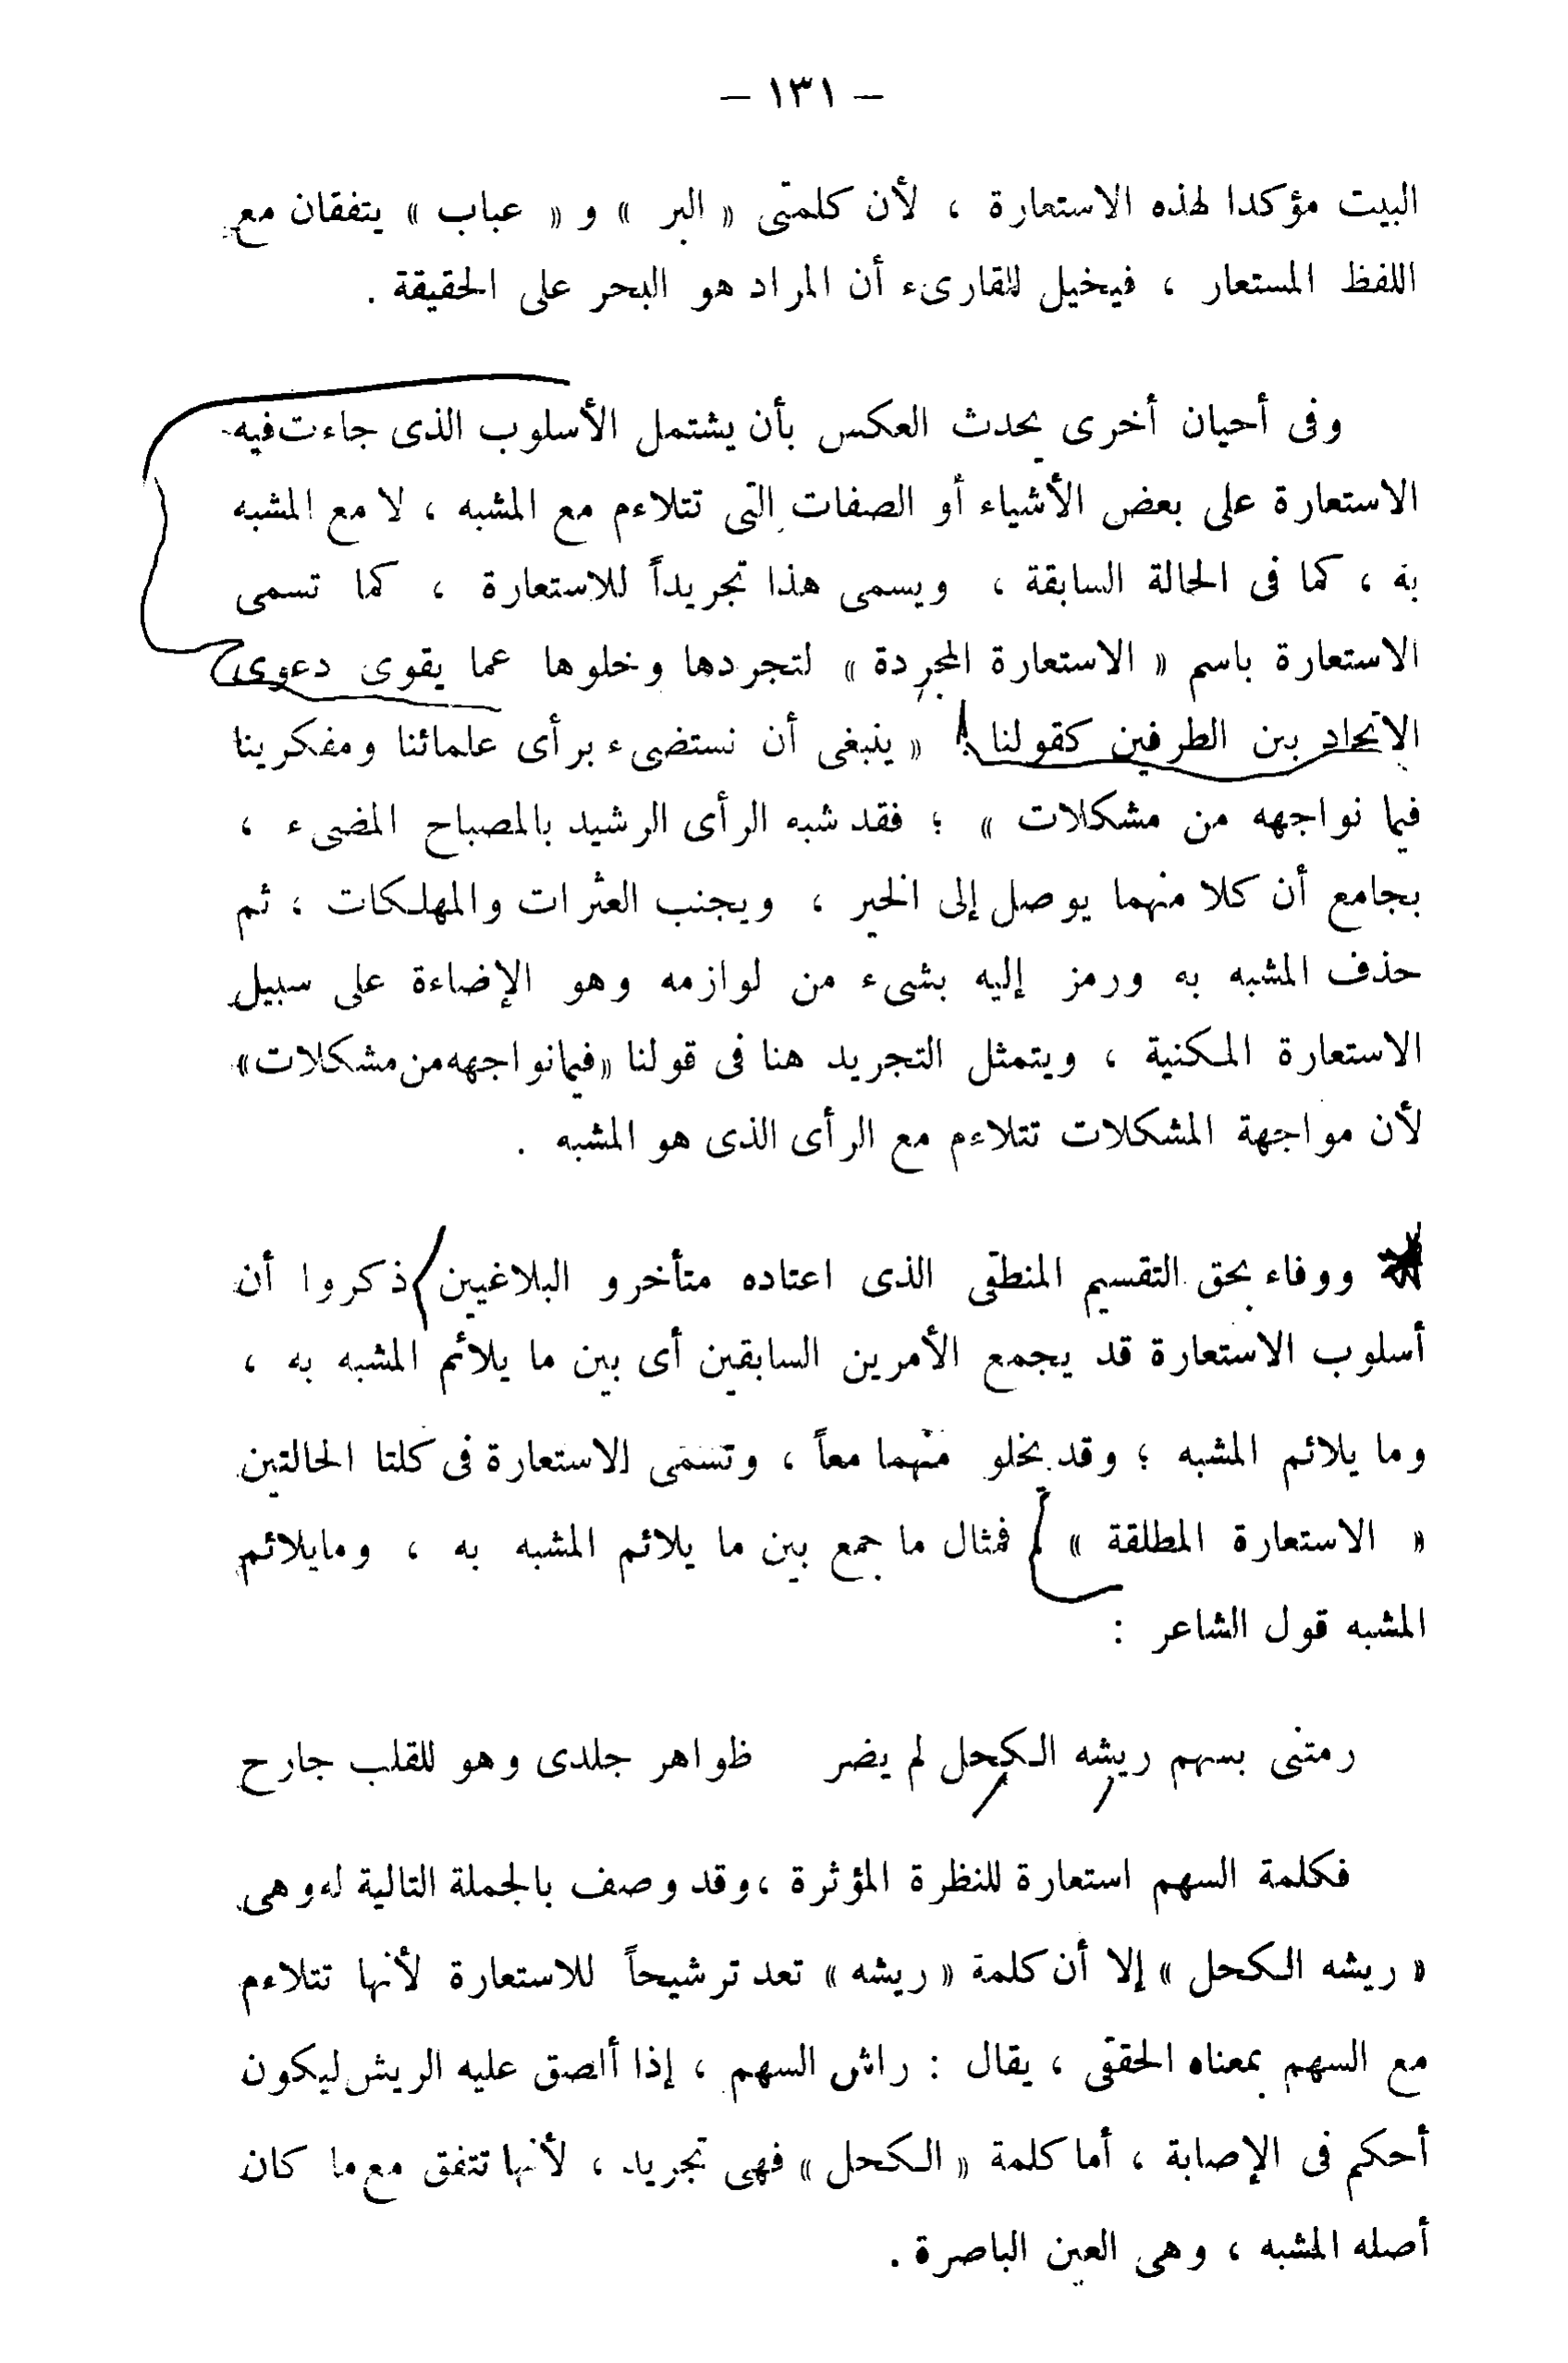 — ١٣١ —
البيت مؤكدا لهذه الاستعارة ، لأن كلمتى « البر » و « عباب » يتفقان مع
اللفظ المستعار ، فيخيل للقارىء أن المراد هو البحر على الحقيقة .
وفى أحيان أخرى يحدث العكس بأن يشتمل الأسلوب الذى جاءت فيه
الاستعارة على بعض الأشياء أو الصفات التى تتلاءم مع المشبه ، لا مع المشبه
به ، كما فى الحالة السابقة ، ويسمى هذا تجريداً للاستعارة ، كما تسمى
الاستعارة باسم « الاستعارة المجردة » لتجردها وخلوها عما يقوى دعوى
الاتحاد بين الطرفين كقولنا « ينبغى أن نستضىء برأى علمائنا ومفكرينا
فيما نواجهه من مشكلات » ؛ فقد شبه الرأى الرشيد بالمصباح المضىء ،
بجامع أن كلا منهما يوصل إلى الخير ، ويجنب العثرات والمهلكات ، ثم
حذف المشبه به ورمز إليه بشىء من لوازمه وهو الإضاءة على سبيل
الاستعارة المكنية ، ويتمثل التجريد هنا فى قولنا «فيما نواجهه من مشكلات»
لأن مواجهة المشكلات تتلاءم مع الرأى الذى هو المشبه .
ووفاء بحق التقسيم المنطقى الذى اعتاده متأخرو البلاغيين ذكروا أن
أسلوب الاستعارة قد يجمع الأمرين السابقين أى بين ما يلائم المشبه به ،
وما يلائم المشبه ؛ وقد يخلو منهما معاً ، وتسمى الاستعارة فى كلتا الحالتين
« الاستعارة المطلقة » فمثال ما جمع بين ما يلائم المشبه به ، وما يلائم
المشبه قول الشاعر :
رمتنى بسهم ريشه الكحل لم يضر ظواهر جلدى وهو للقلب جارح
فكلمة السهم استعارة للنظرة المؤثرة ، وقد وصف بالجملة التالية له وهى
« ريشه الكحل » إلا أن كلمة « ريشه » تعد ترشيحاً للاستعارة لأنها تتلاءم
مع السهم بمعناه الحقى ، يقال : راش السهم ، إذا ألصق عليه الريش ليكون
أحكم فى الإصابة ، أما كلمة « الكحل » فهى تجريد ، لأنها تتفق مع ما كان
أصله المشبه ، وهى العين الباصرة .